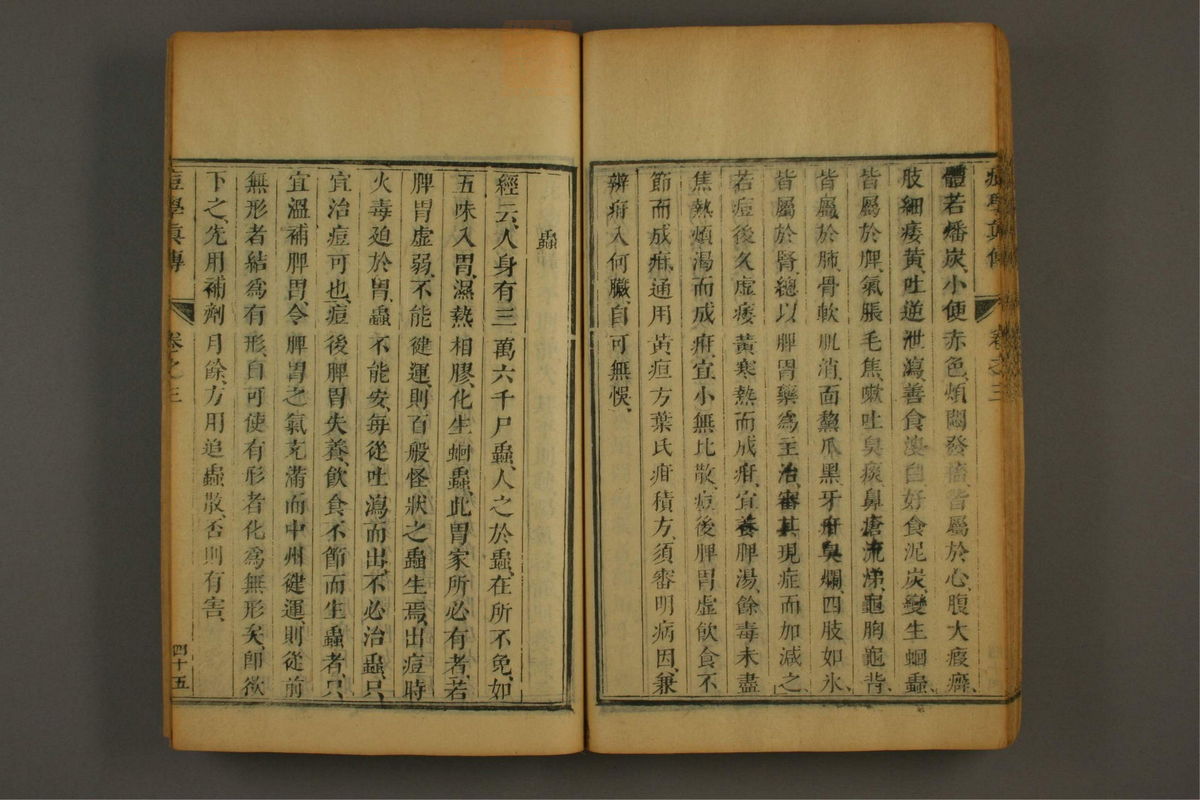 體若燔炭、小便赤色、煩悶發搐、皆屬於心、腹大癥癖、
肢細痿黃、吐逆泄瀉、善食溲白、好食泥炭、變生蛔蟲、
皆屬於脾、氣脹毛焦、嗽吐臭痰、鼻瘡流涕、龜胸龜背、
皆屬於肺、骨軟肌消、面黧爪黑、牙疳臭爛、四肢如氷、
皆屬於腎、總以脾胃藥爲主治、審其現症而加減之、
若痘後久虛痿黃寒熱而成疳、宜養脾湯、餘毒未盡
焦熱煩渴而成疳、宜小無比散、痘後脾胃虛飲食不
節而成疳、通用黃疸方葉氏疳積方、須審明病因、兼
辨疳入何臟、自可無悞、
卷之三
蟲
經云、人身有三萬六千尸蟲、人之於蟲、在所不免、如
五味入胃、濕熱相膠、化生蛔蟲、此胃家所必有者、若
脾胃虛弱、不能健運、則百般怪狀之蟲生焉、出痘時
火毒廹於胃、蟲不能安、每從吐瀉而出、不必治蟲、只
宜治痘可也、痘後脾胃失養、飲食不節而生蟲者、只
宜溫補脾胃、令脾胃之氣充滿而中州健運、則從前
無形者結爲有形、自可使有形者化爲無形矣、卽欲
下之、先用補劑月餘、方用追蟲散、否則有害、
痘學眞傳 卷之三 四十五